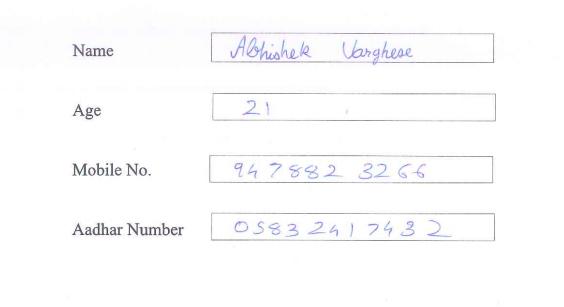 Name Abhishek Varghese
Age 21
Mobile No. 947882 3266
Aadhar Number 05832417432